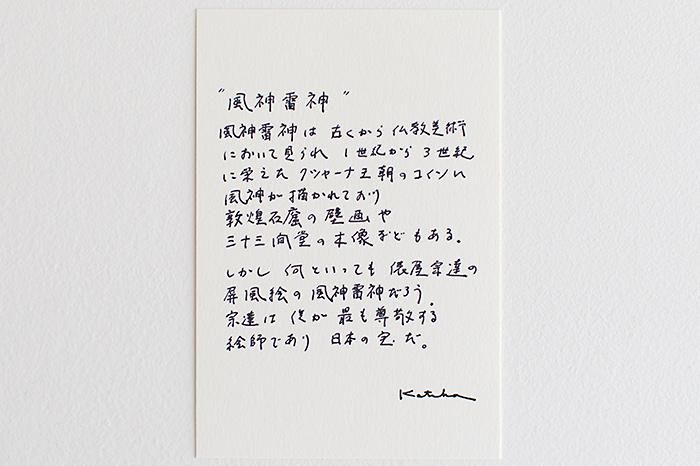 "風神雷神"
風神雷神は 古くから 仏教美術
において見られ 1世紀から3世紀
に栄えた クシャーナ王朝のコインに
風神が描かれており
敦煌石窟の壁画や
三十三間堂の木像などもある。
しかし 何といっても 俵屋宗達の
屏風絵の風神雷神だろう.
宗達は 僕が 最も尊敬する
絵師であり 日本の宝だ。